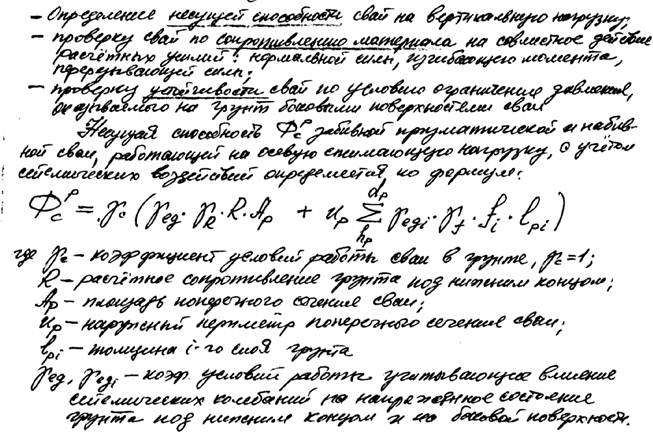 – Определение несущей способности свай на вертикальную нагрузку;
– проверку свай по сопротивлению материала на совместное действие
расчётных усилий: нормальной силы, изгибающего момента,
перерезывающей силы;
– проверку устойчивости свай по условию ограничения давления,
оказываемого на грунт боковыми поверхностями сваи
Несущая способность Фс^р забивной призматической и набив-
ной сваи, работающей на осевую сжимающую нагрузку, с учётом
сейсмических воздействий определяется по формуле:
Фс^р = γc (γeд · γR · R · Ap + up Σ γeдi · γf · fi · lpi)
где γc – коэффициент условий работы сваи в грунте, γc=1;
R – расчётное сопротивление грунта под нижним концом;
Ap – площадь поперечного сечения сваи;
up – наружный периметр поперечного сечения сваи;
lpi – толщина i-го слоя грунта
γeд, γeдi – коэф. условий работы учитывающие влияние
сейсмических колебаний на напряженное состояние
грунта под нижним концом и на боковой поверхности.